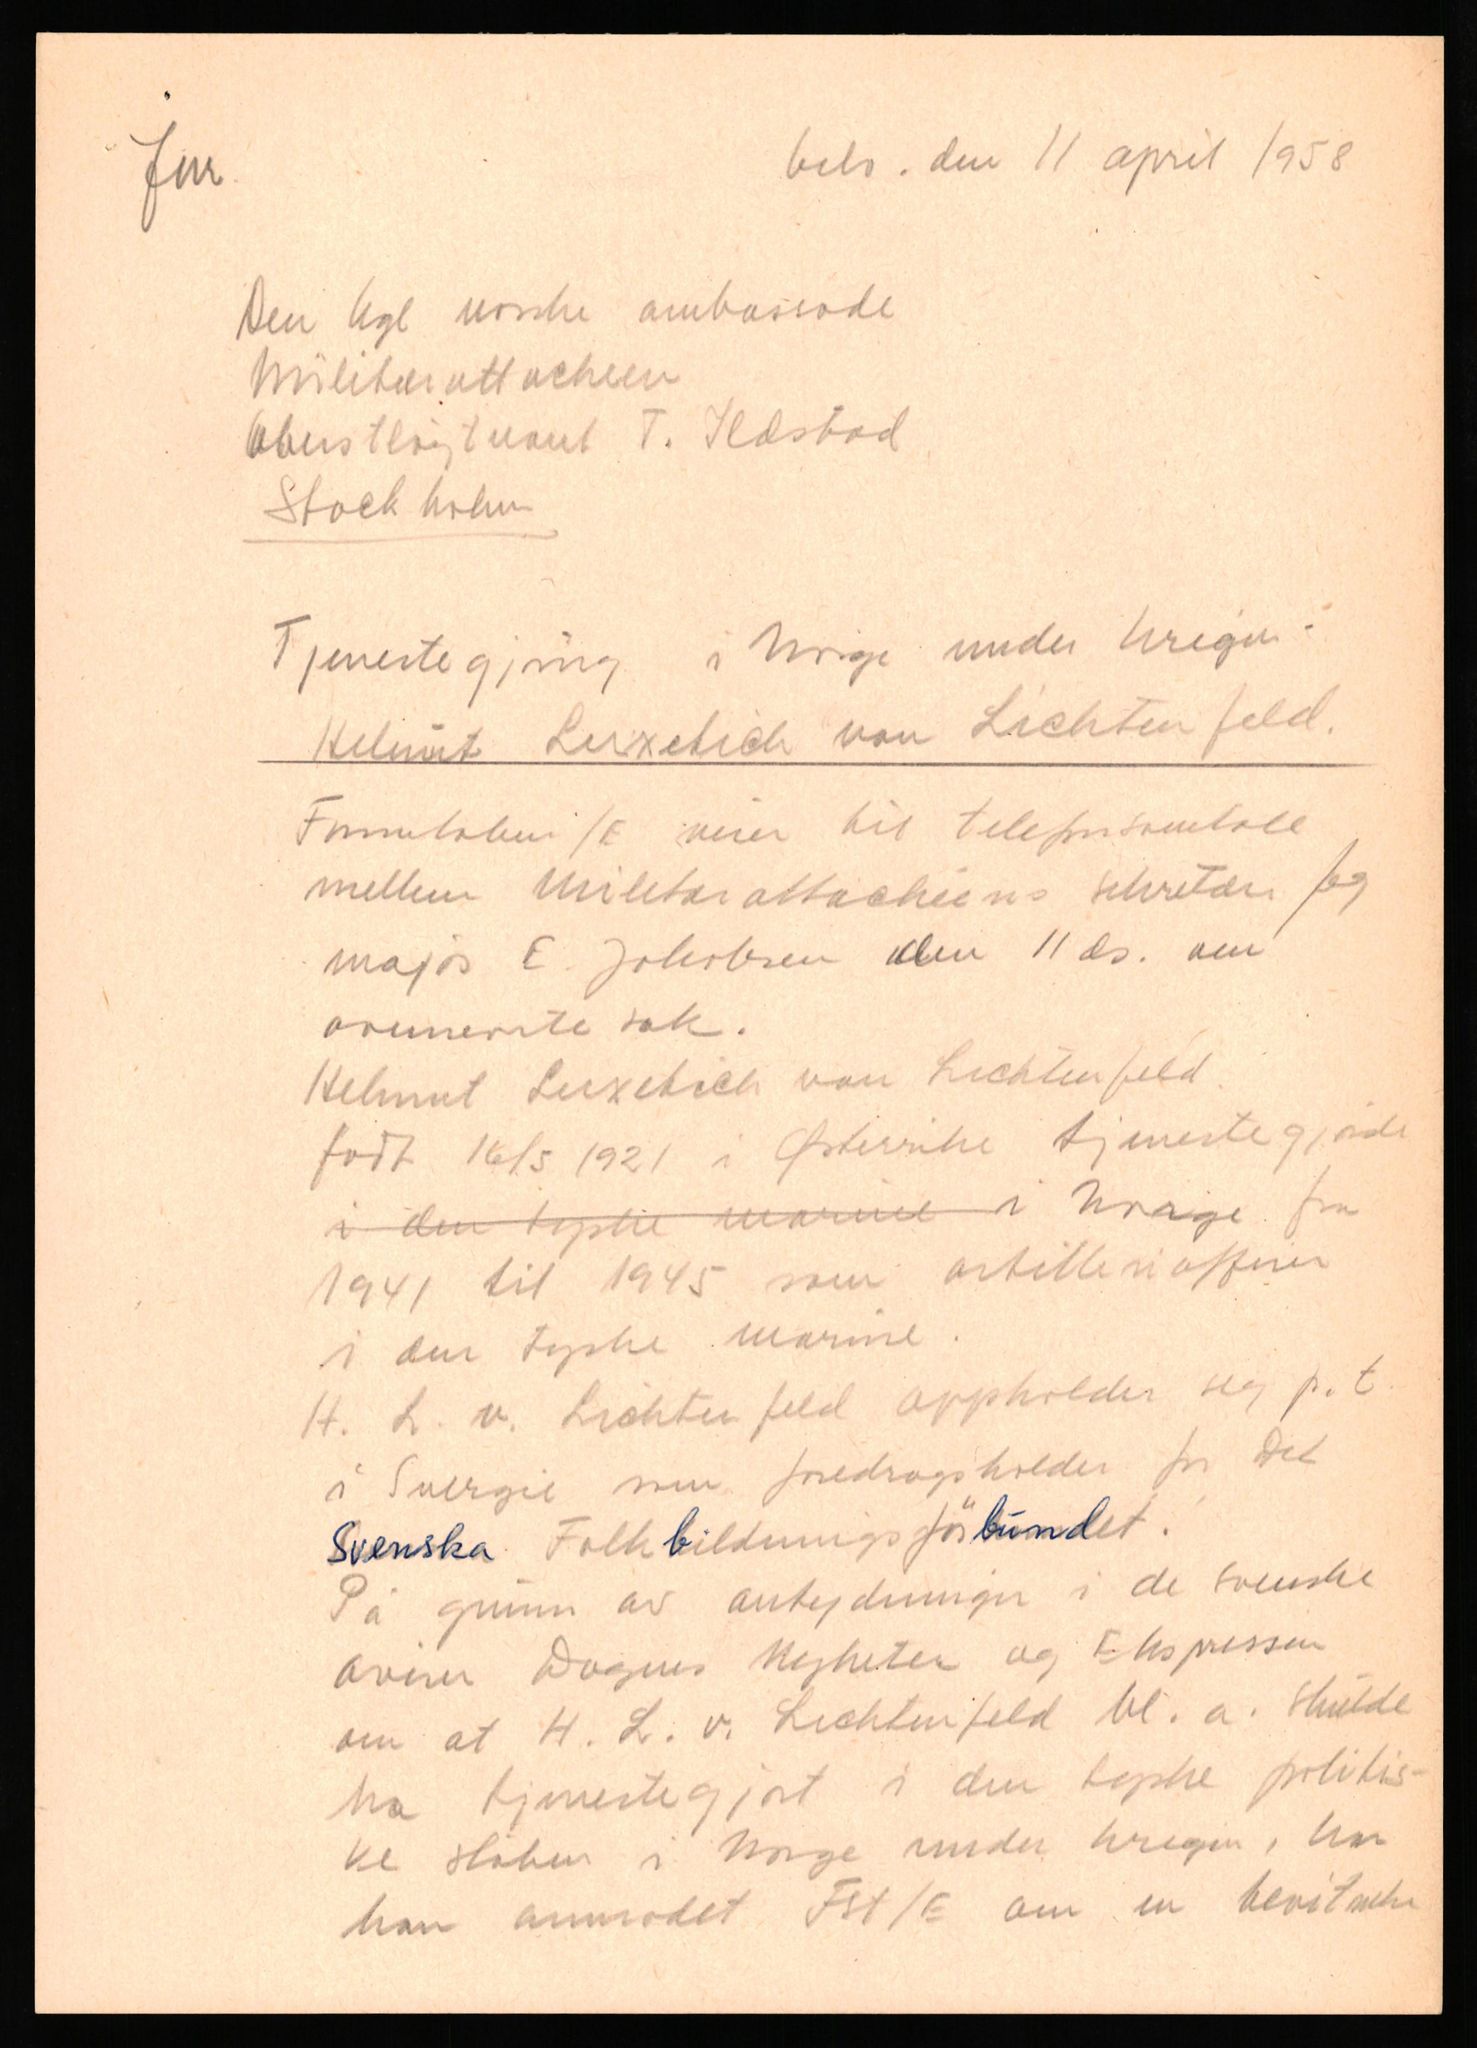 Jnr.
den 11 april 1958
Den kgl norske ambassade
Militærattachéen
Oberstløytnant T. Ildstad
Stockholm
Tjenestegjøring i Norge under krigen -
Helmut Luxetich von Lichtenfeld.
Forsvtaben/E viser til telefonsamtale
mellem Militærattachéens sekretær og
major E Jakobsen den 11 ds. om
ovennevnte sak.
Helmut Luxetich von Lichtenfeld
født 16/5 1921 i Østerrike tjenestegjorde
i den tyske marine i Norge fra
1941 til 1945 som artilleriofficer
i den tyske marine.
H. L. v. Lichtenfeld oppholder seg p.t.
i Sverige som foredragsholder for Det
Svenska Folkbildningsförbundet.
På grunn av antydninger i de svenske
aviser Dagens Nyheter og Ekspressen
om at H. L. v. Lichtenfeld bl. a. skulde
ha tjenestegjort i den tyske politis-
ke staben i Norge under krigen, har
han anmodet Fst/E om en bevitnelse